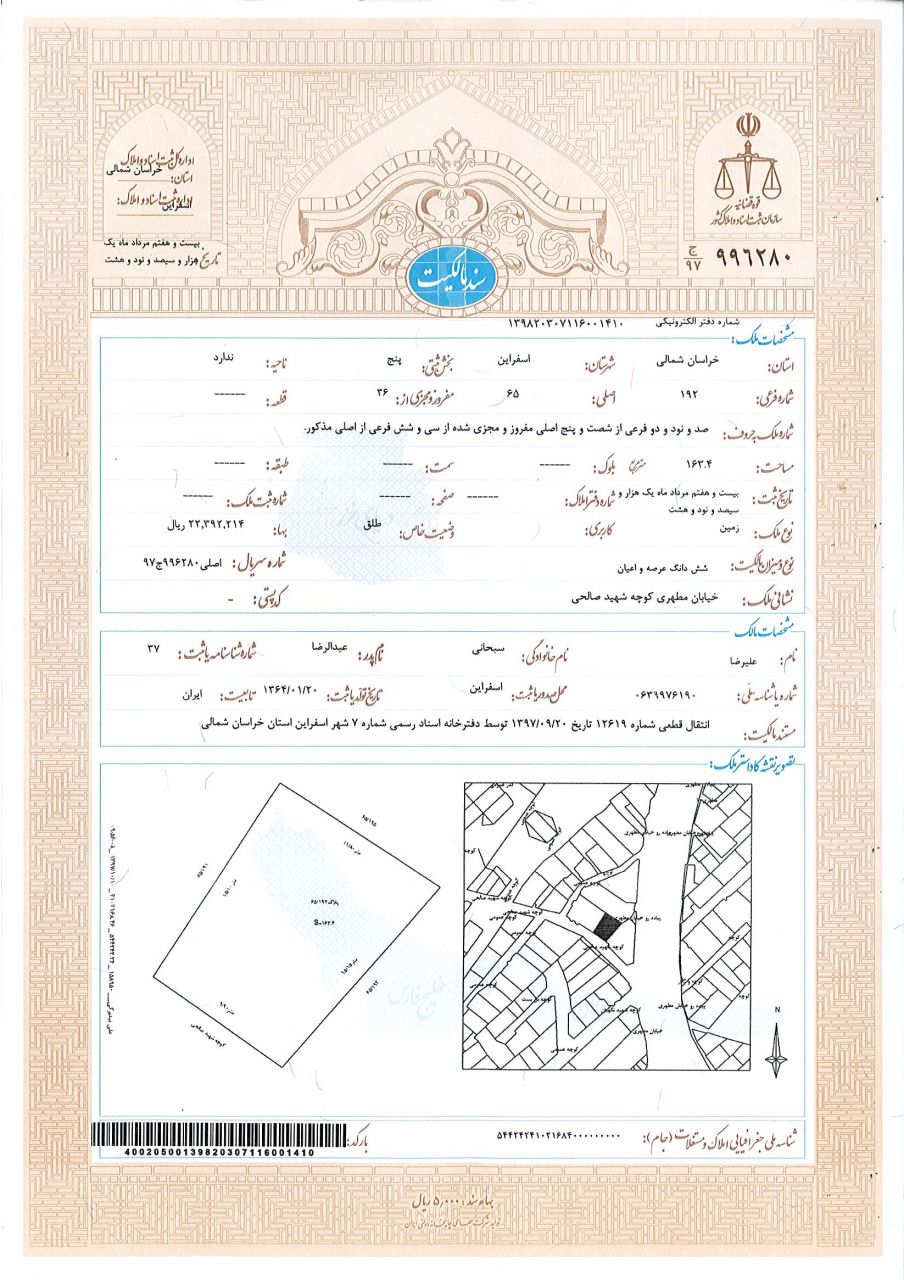 اداره کل ثبت اسناد و املاک
استان: خراسان شمالی
اداره ثبت اسناد و املاک: اسفراین
تاریخ: بیست و هفتم مرداد ماه یک هزار و سیصد و نود و هشت
قوه قضائیه
سازمان ثبت اسناد و املاک کشور
۹۹۶۲۸۰ ج ۹۷
سند مالکیت
شماره دفتر الکترونیکی ۱۳۹۸۲۰۳۰۷۱۱۶۰۰۱۴۱۰
مشخصات ملک:
استان: خراسان شمالی شهرستان: اسفراین بخش ثبتی: پنج ناحیه: ندارد
شماره فرعی: ۱۹۲ اصلی: ۶۵ مفروز و مجزی از: ۳۶ قطعه: ------
شماره ملک به حروف: صد و نود و دو فرعی از شصت و پنج اصلی مفروز و مجزی شده از سی و شش فرعی از اصلی مذکور.
مساحت: ۱۶۳.۴ متر مربع بلوک: ------ سمت: ------ طبقه: ------
تاریخ ثبت: بیست و هفتم مرداد ماه یک هزار و سیصد و نود و هشت شماره دفتر املاک: ------ صفحه: ------ شماره ثبت ملک: ------
نوع ملک: زمین کاربری: وضعیت خاص: طلق بها: ۲۲,۳۹۲,۲۱۴ ریال
نوع و میزان مالکیت: شش دانگ عرصه و اعیان شماره سریال: اصلی۹۹۶۲۸۰ج۹۷
نشانی ملک: خیابان مطهری کوچه شهید صالحی کد پستی: -
مشخصات مالک
نام: علیرضا نام خانوادگی: سبحانی نام پدر: عبدالرضا شماره شناسنامه یا ثبت: ۳۷
شماره یا شناسه ملی: ۰۶۳۹۹۷۶۱۹۰ محل صدور یا ثبت: اسفراین تاریخ تولد یا ثبت: ۱۳۶۴/۰۱/۲۰ تابعیت: ایران
مستند مالکیت: انتقال قطعی شماره ۱۲۶۱۹ تاریخ ۱۳۹۷/۰۹/۲۰ توسط دفترخانه اسناد رسمی شماره ۷ شهر اسفراین استان خراسان شمالی
تصویر نقشه کاداستر ملک:
۶۵/۱۹۵
متر ۱۱/۸۰
پلاک۶۵/۱۹۲
۶۵/۱۹۳
کوچه شهید صالحی
پیاده رو خیابان مطهری
کوچه شهید صالحی
کوچه عمومی
خیابان مطهری
N
خلیج فارس
شناسه ملی جغرافیایی املاک و مستغلات (جام): ۵۴۴۲۴۲۴۱۰۲۱۶۸۴۰۰۰۰۰۰۰۰۰
بارکد:
40020500139820307116001410
بهاء سند: ۵,۰۰۰ ریال